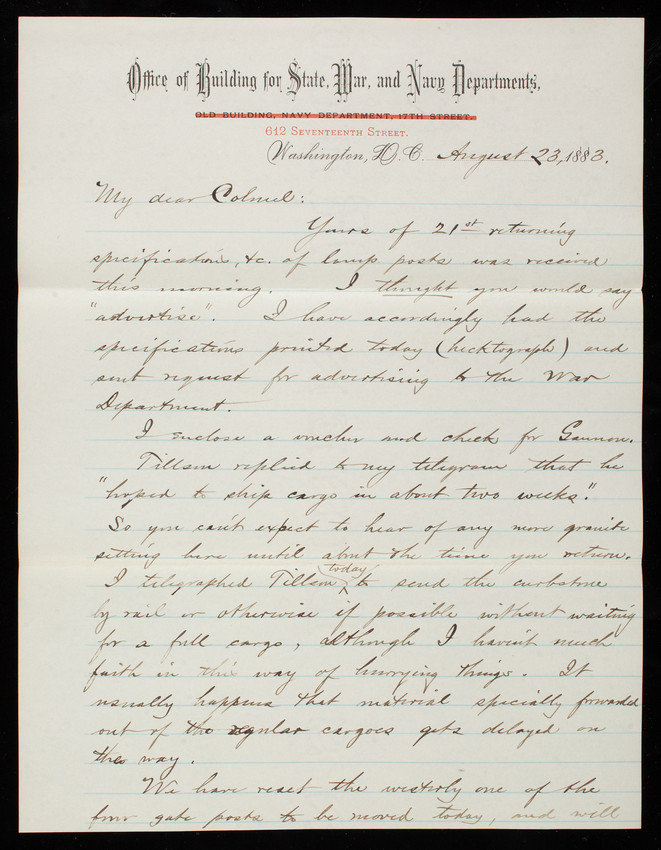 Office of Building for State, War, and Navy Departments,
OLD BUILDING, NAVY DEPARTMENT, 17TH STREET.
612 SEVENTEENTH STREET.
Washington, D. C. August 23, 1883.
My dear Colonel:
Yours of 21st returning
specifications, &c. of lamp posts was received
this morning. I thought you would say
"advertise". I have accordingly had the
specifications printed today (hecktograph) and
sent request for advertising to the War
Department.
I enclose a voucher and check for Gannon.
Tillson replied to my telegram that he
"hoped to ship cargo in about two weeks".
So you can't expect to hear of any more granite
setting here until about the time you return.
today
I telegraphed Tillson ^ to send the curbstone
by rail or otherwise if possible without waiting
for a full cargo, although I haven't much
faith in this way of hurrying things. It
usually happens that material specially forwarded
out of the regular cargoes gets delayed on
the way.
We have reset the westerly one of the
four gate posts to be moved today, and will